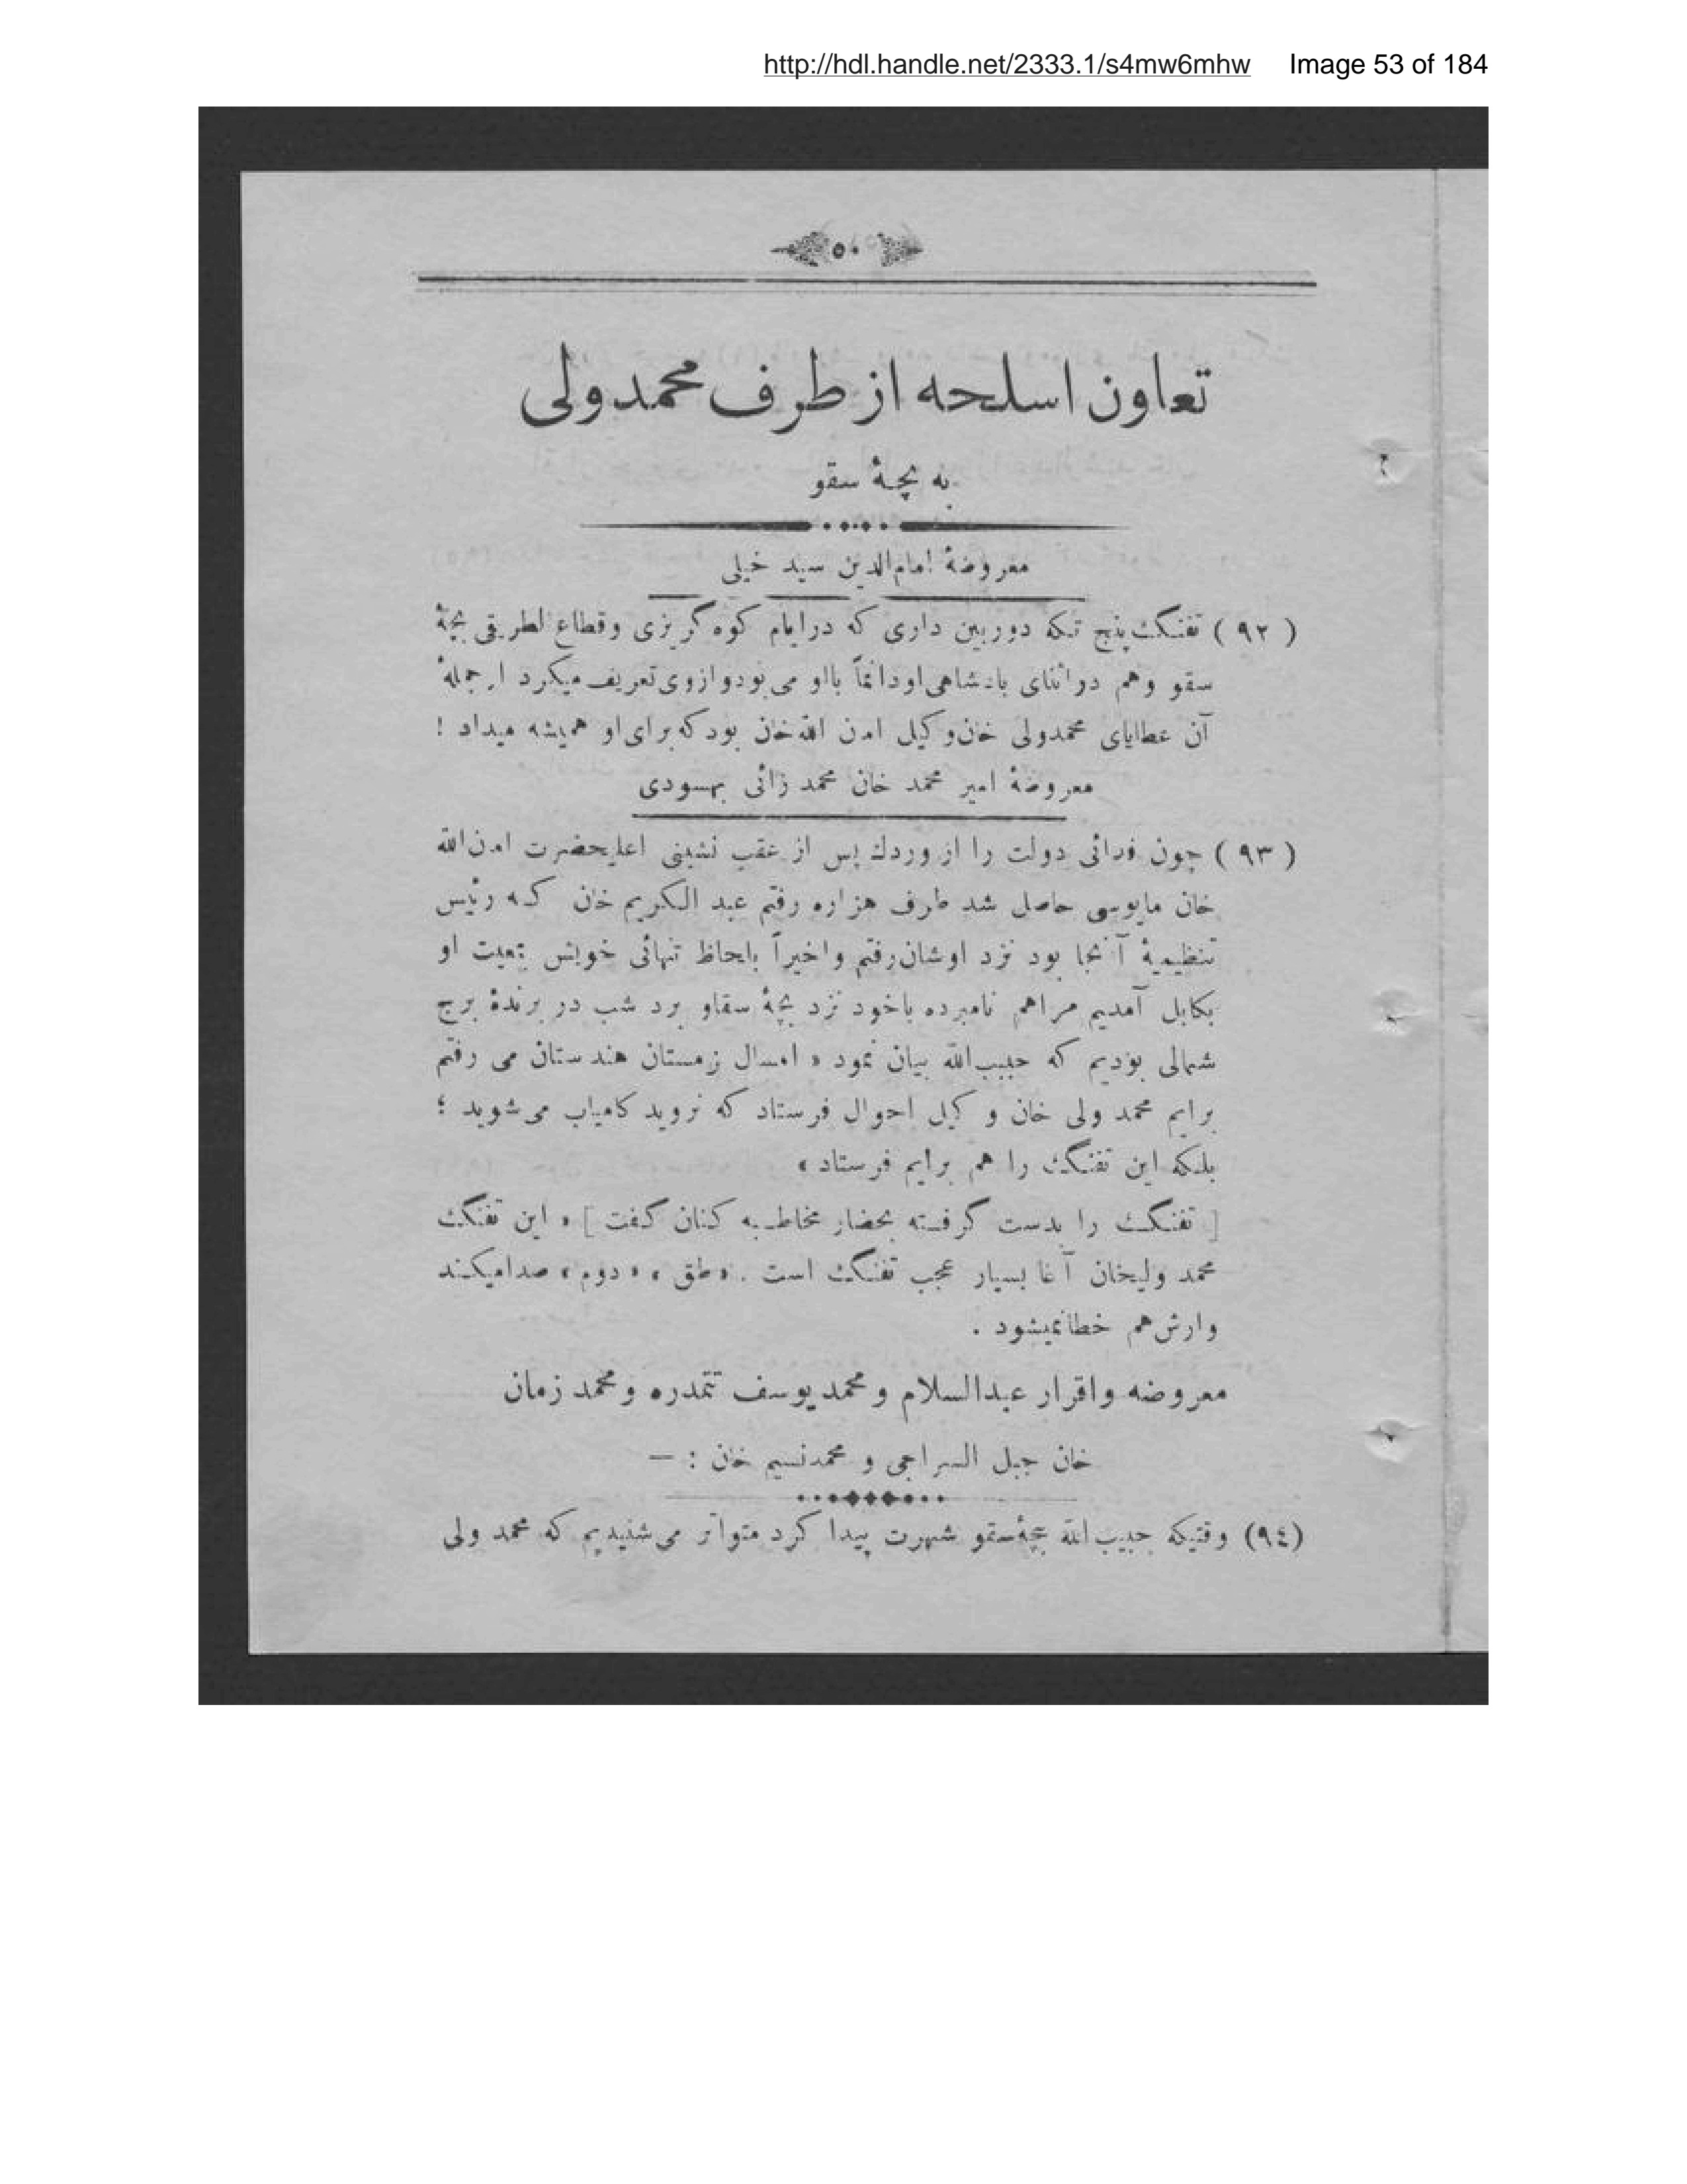 http://hdl.handle.net/2333.1/s4mw6mhw Image 53 of 184
٥٠
تعاون اسلحه از طرف محمدولی
به بچهٔ سقو
معروضهٔ امام‌الدین سید خیلی
( ٩٢ ) تفنگ پنج تکه دوربین داری که در ایام کوه گریزی و قطاع الطریقی بچهٔ
سقو و هم در اثنای پادشاهی او دائماً با او می بود و از وی تعریف میکرد از جملهٔ
آن عطایای محمدولی خان وکیل امان الله خان بود که برای او همیشه میداد !
معروضهٔ امیر محمد خان محمد زائی بهسودی
( ٩٣ ) چون فدائی دولت را از وردك پس از عقب نشینی اعلیحضرت امان الله
خان مایوسی حاصل شد طرف هزاره رفتم عبد الکریم خان که رئیس
تنظیمیهٔ آنجا بود نزد اوشان رفتم و اخیراً بلحاظ تنهائی خویش بمعیت او
بکابل آمدیم مرا هم نامبرده باخود نزد بچهٔ سقاو برد شب در برندهٔ برج
شمالی بودیم که حبیب‌الله بیان نمود « امسال زمستان هندستان می رفتم
برایم محمد ولی خان و کیل احوال فرستاد که نروید کامیاب می شوید ؛
بلکه این تفنگ را هم برایم فرستاد »
[ تفنگ را بدست گرفته بحضار مخاطبه کنان گفت ] « این تفنگ
محمد ولیخان آغا بسیار عجب تفنگ است . « طق » « دوم » صدا میکند
وارش هم خطا نمیشود .
معروضه و اقرار عبدالسلام و محمد یوسف تتمدره و محمد زمان
خان جبل السراجی و محمدنسیم خان : —
(٩٤) وقتیکه حبیب الله بچهٔ سقو شهرت پیدا کرد متواتر می شنیدیم که محمد ولی